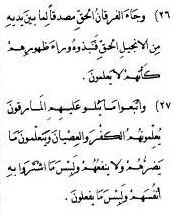 ٢٦) وَجَاءَ الفرقانُ الحَقُّ مصدقًا لما بين يديهِ
من الانجيلِ الحَقِّ فَنَبَذُوهُ وراءَ ظهورِهِمْ
كأنَّهُمْ لا يَعلَمونَ.
٢٧) واتَّبَعوا ما يَتْلو عليهِمِ المارقونَ
يُعلِّمونَهُمُ الكُفْرَ والعِصْيانَ ويَتعلَّمونَ مَا
يَضُرُّهُمْ ولا ينفعُهُمْ ولَبِئْسَ مَا اشْتَرَوا بهِ
أنفُسَهُمْ ولَبِئْسَ ما يفعلونَ.